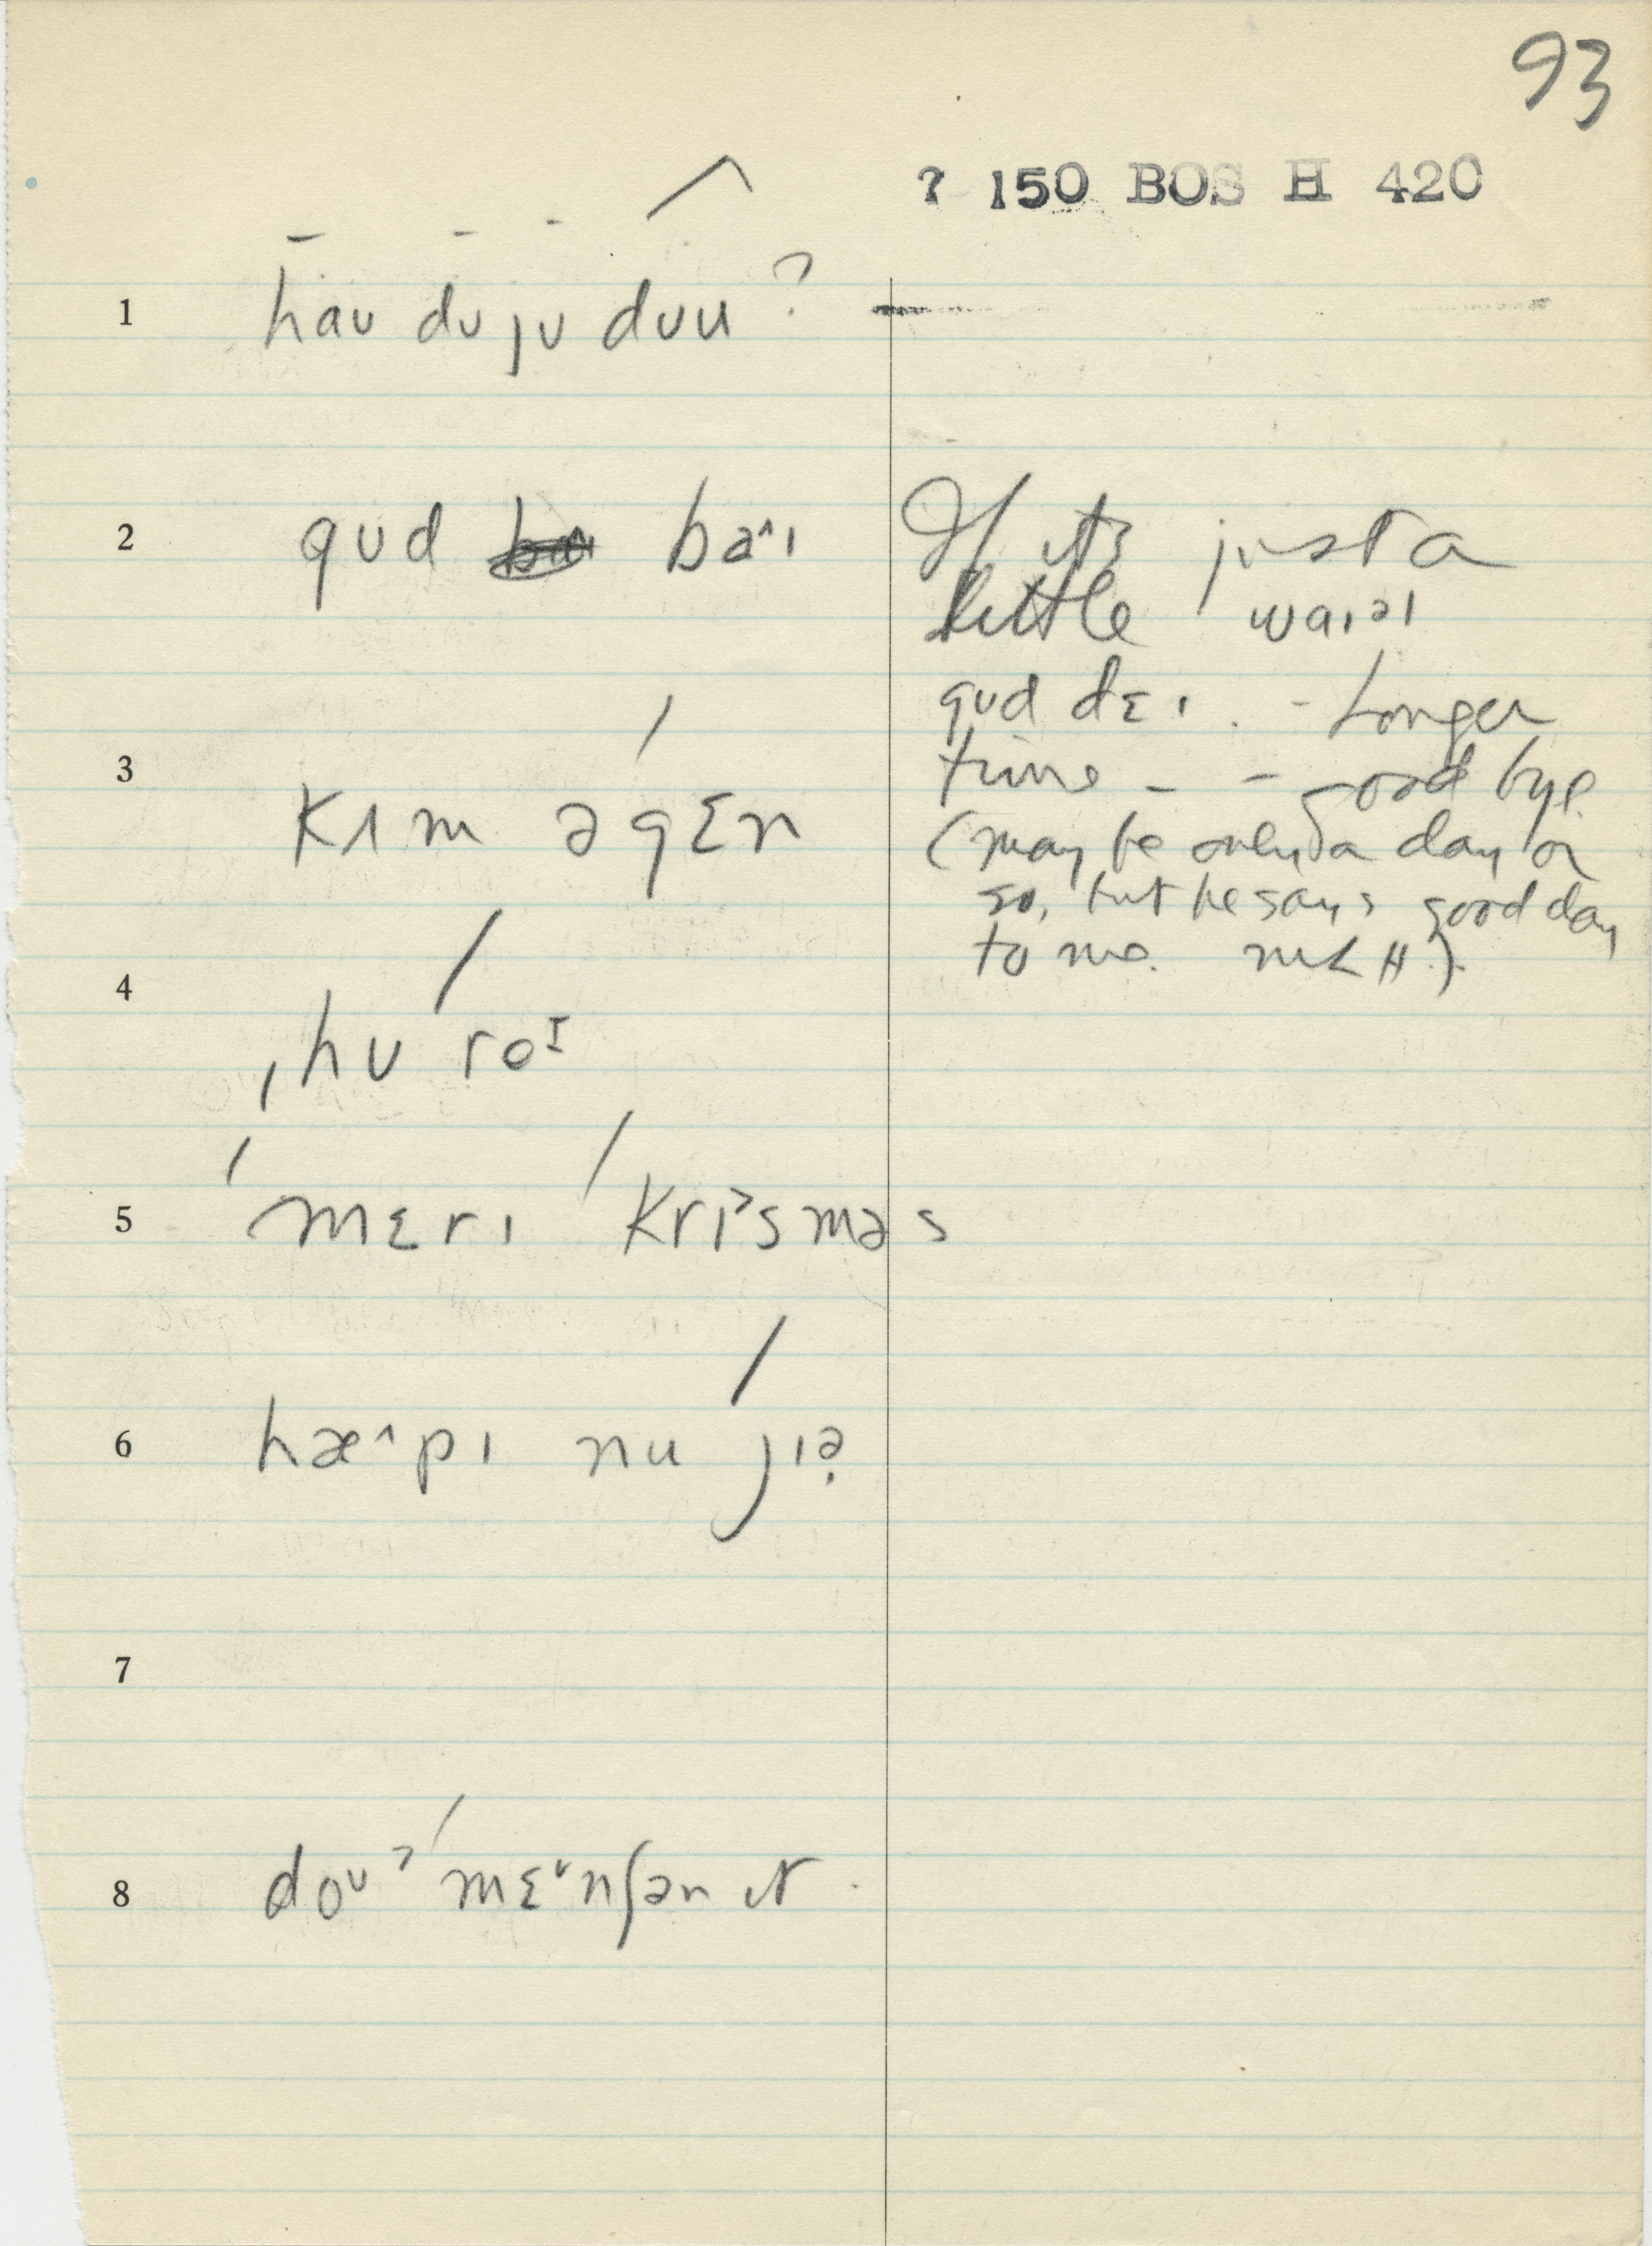 93
? 150 BOS H 420
1 haʊ dʊ jʊ dʊu ?
2 gʊd ba˄ɪ
If it's just a
little waɪəl
gʊd dɛɪ. - Longer
time - - good bye
(may be only a day or
so, but he says good day
to me. MLH.)
3 kɪm əgɛn
4 ˌhʊ roɪ
5 ˈmɛrɪ krɪ˃sməs
6 hæ˄pɪ nu jɪə̣
7
8 doʊ˃ mɛ˅nʃən ɪt.